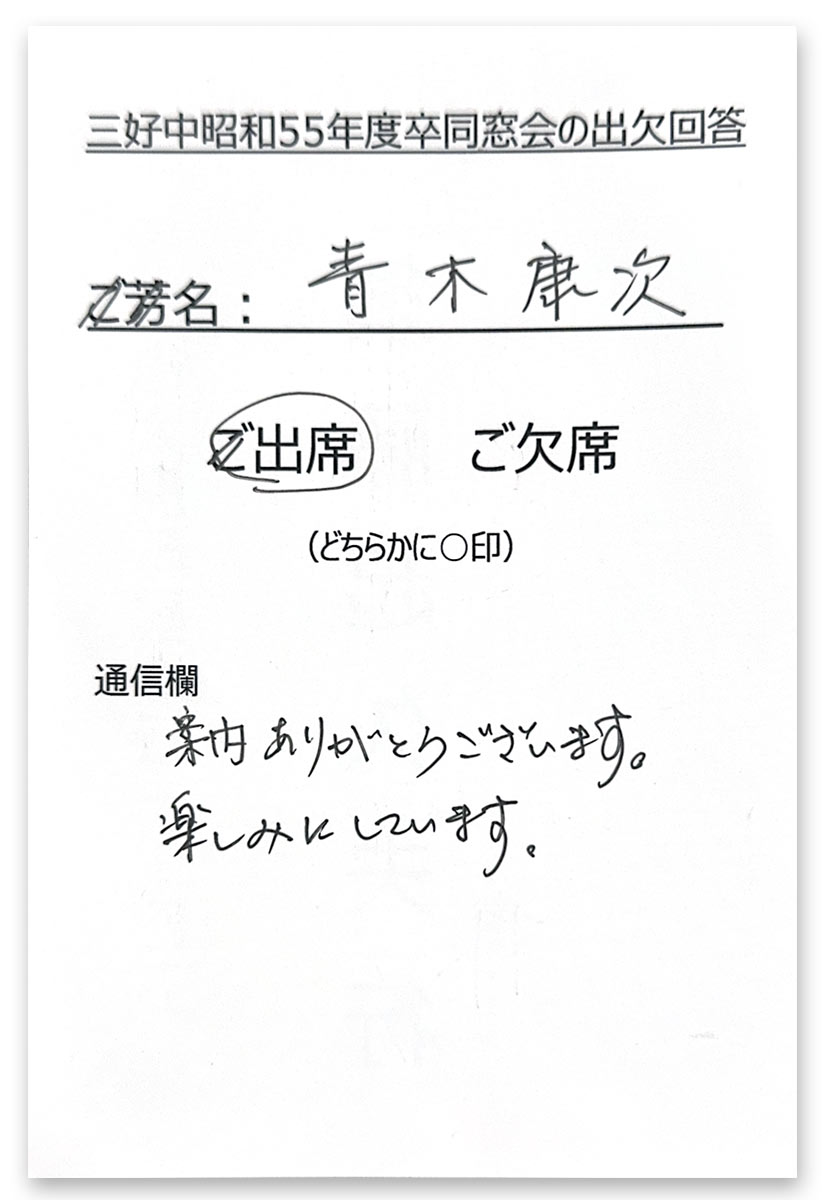 三好中昭和55年度卒同窓会の出欠回答
ご芳名： 青木康次
ご出席 ご欠席
（どちらかに○印）
通信欄
案内ありがとうございます。
楽しみにしています。